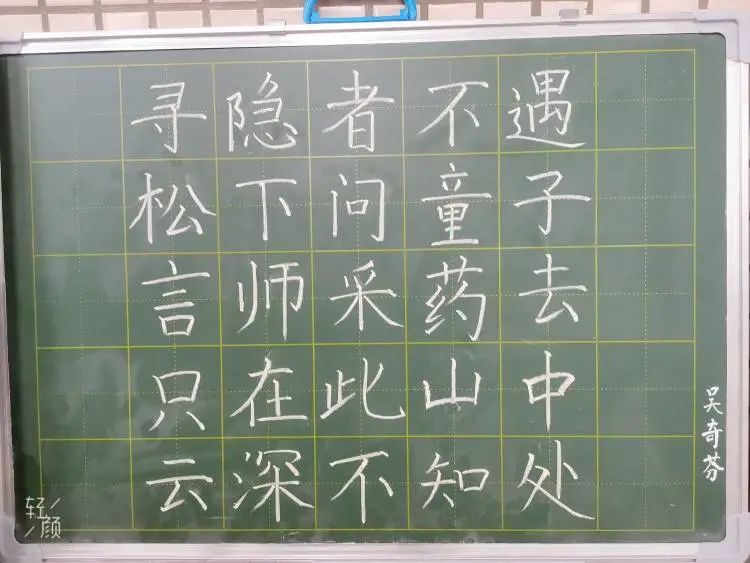 寻隐者不遇
松下问童子
言师采药去
只在此山中
云深不知处
吴奇芬
轻颜